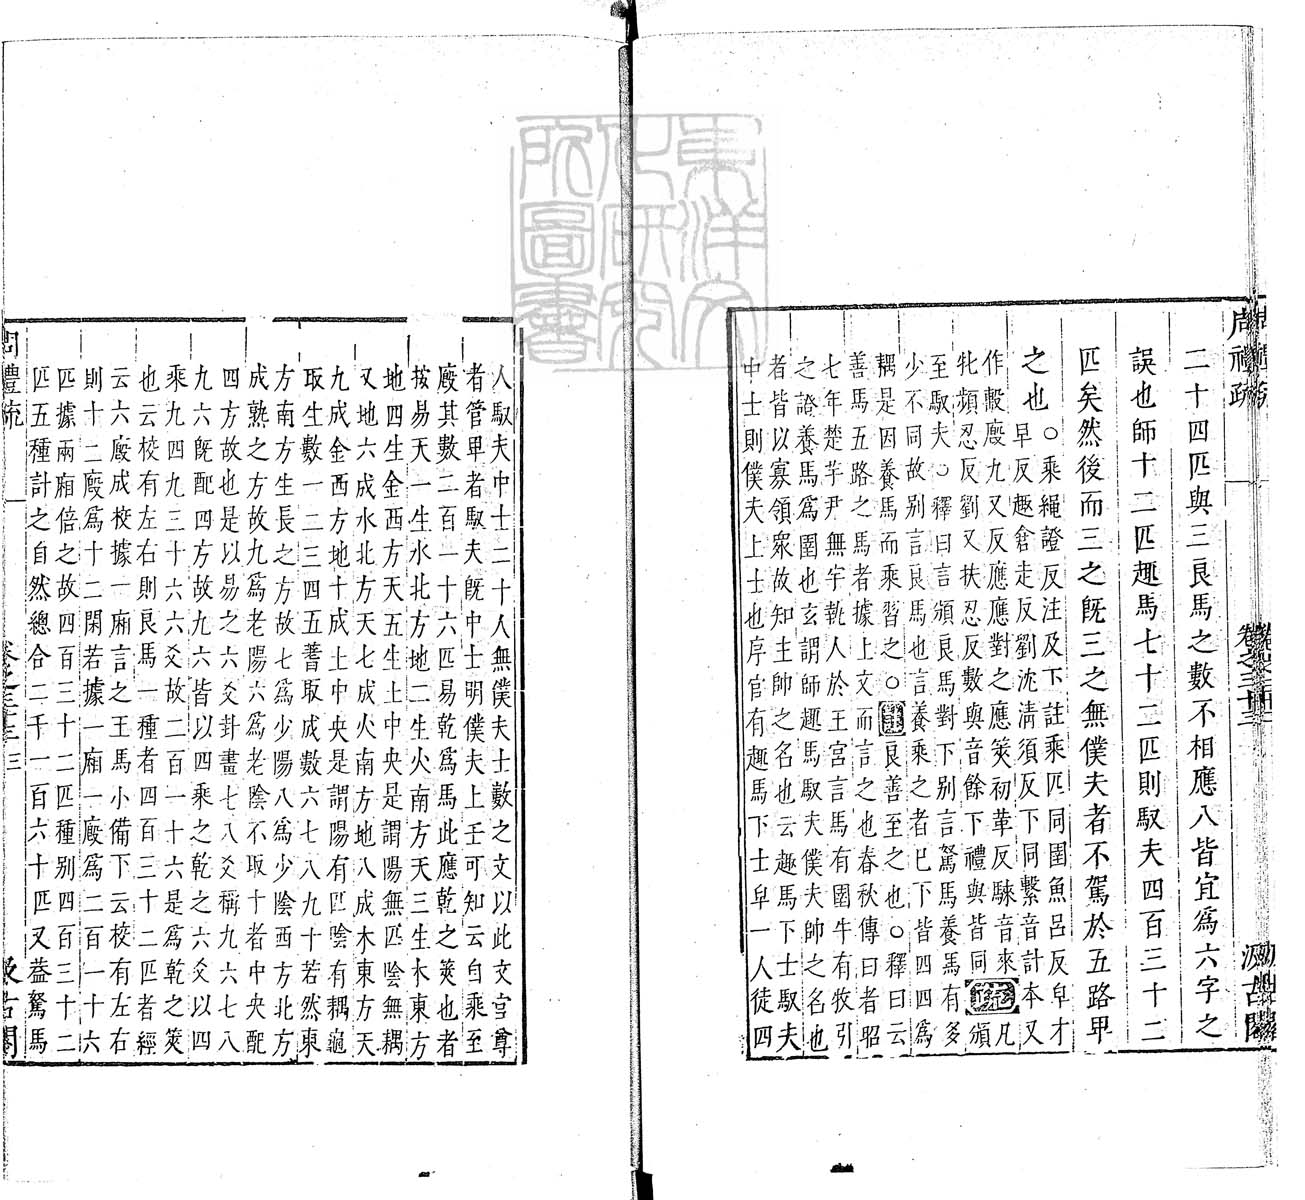 周禮疏 卷之三十三 汲古閣
二十四匹與三良馬之數不相應八皆宜爲六字之
誤也師十二匹趣馬七十二匹則馭夫四百三十二
匹矣然後而三之旣三之無僕夫者不駕於五路甲
之也○乘繩證反注及下註乘匹同圉魚呂反皁才
早反趣倉走反劉沈淸須反下同繫音計本又
作毄廄九又反應應對之應筴初革反騋音來凡
牝頻忍反劉又扶忍反數與音餘下禮與皆同疏頒
至馭夫○釋曰言頒良馬對下别言駑馬養馬有多
少不同故别言良馬也言養乘之者已下皆四四爲
耦是因養馬而乘習之○注良善至之也○釋曰云
善馬五路之馬者據上文而言之也春秋傳曰者昭
七年楚芋尹無宇執人於王宮言馬有圉牛有牧引
之證養馬爲圉也玄謂師趣馬馭夫僕夫帥之名也
者皆以寡領衆故知主帥之名也云趣馬下士馭夫
中士則僕夫上士也序官有趣馬下士皁一人徒四
人馭夫中士二十人無僕夫士數之文以此文宮尊
者管卑者馭夫旣中士明僕夫上士可知云自乘至
廄其數二百一十六匹易乾爲馬此應乾之筴也者
按易天一生水北方地二生火南方天三生木東方
地四生金西方天五生土中央是謂陽無匹陰無耦
又地六成水北方天七成火南方地八成木東方天
九成金西方地十成土中央是謂陽有匹陰有耦龜
取生數一二三四五蓍取成數六七八九十若然東
方南方生長之方故七爲少陽八爲少陰西方北方
成熟之方故九爲老陽六爲老陰不取十者中央配
四方故也是以易之六爻卦畫七八爻稱九六七八
九六旣配四方故九六皆以四乘之乾之六爻以四
乘九四九三十六六爻故二百一十六是爲乾之筴
也云校有左右則良馬一種者四百三十二匹者經
云六廄成校據一廂言之王馬小備下云校有左右
則十二廄爲十二閑若據一廂一廄爲二百一十六
匹據兩廂倍之故四百三十二匹種别四百三十二
匹五種計之自然總合二千一百六十匹又葢駑馬
周禮疏 卷之三十三 三 汲古閣
東洋文化研究所圖書